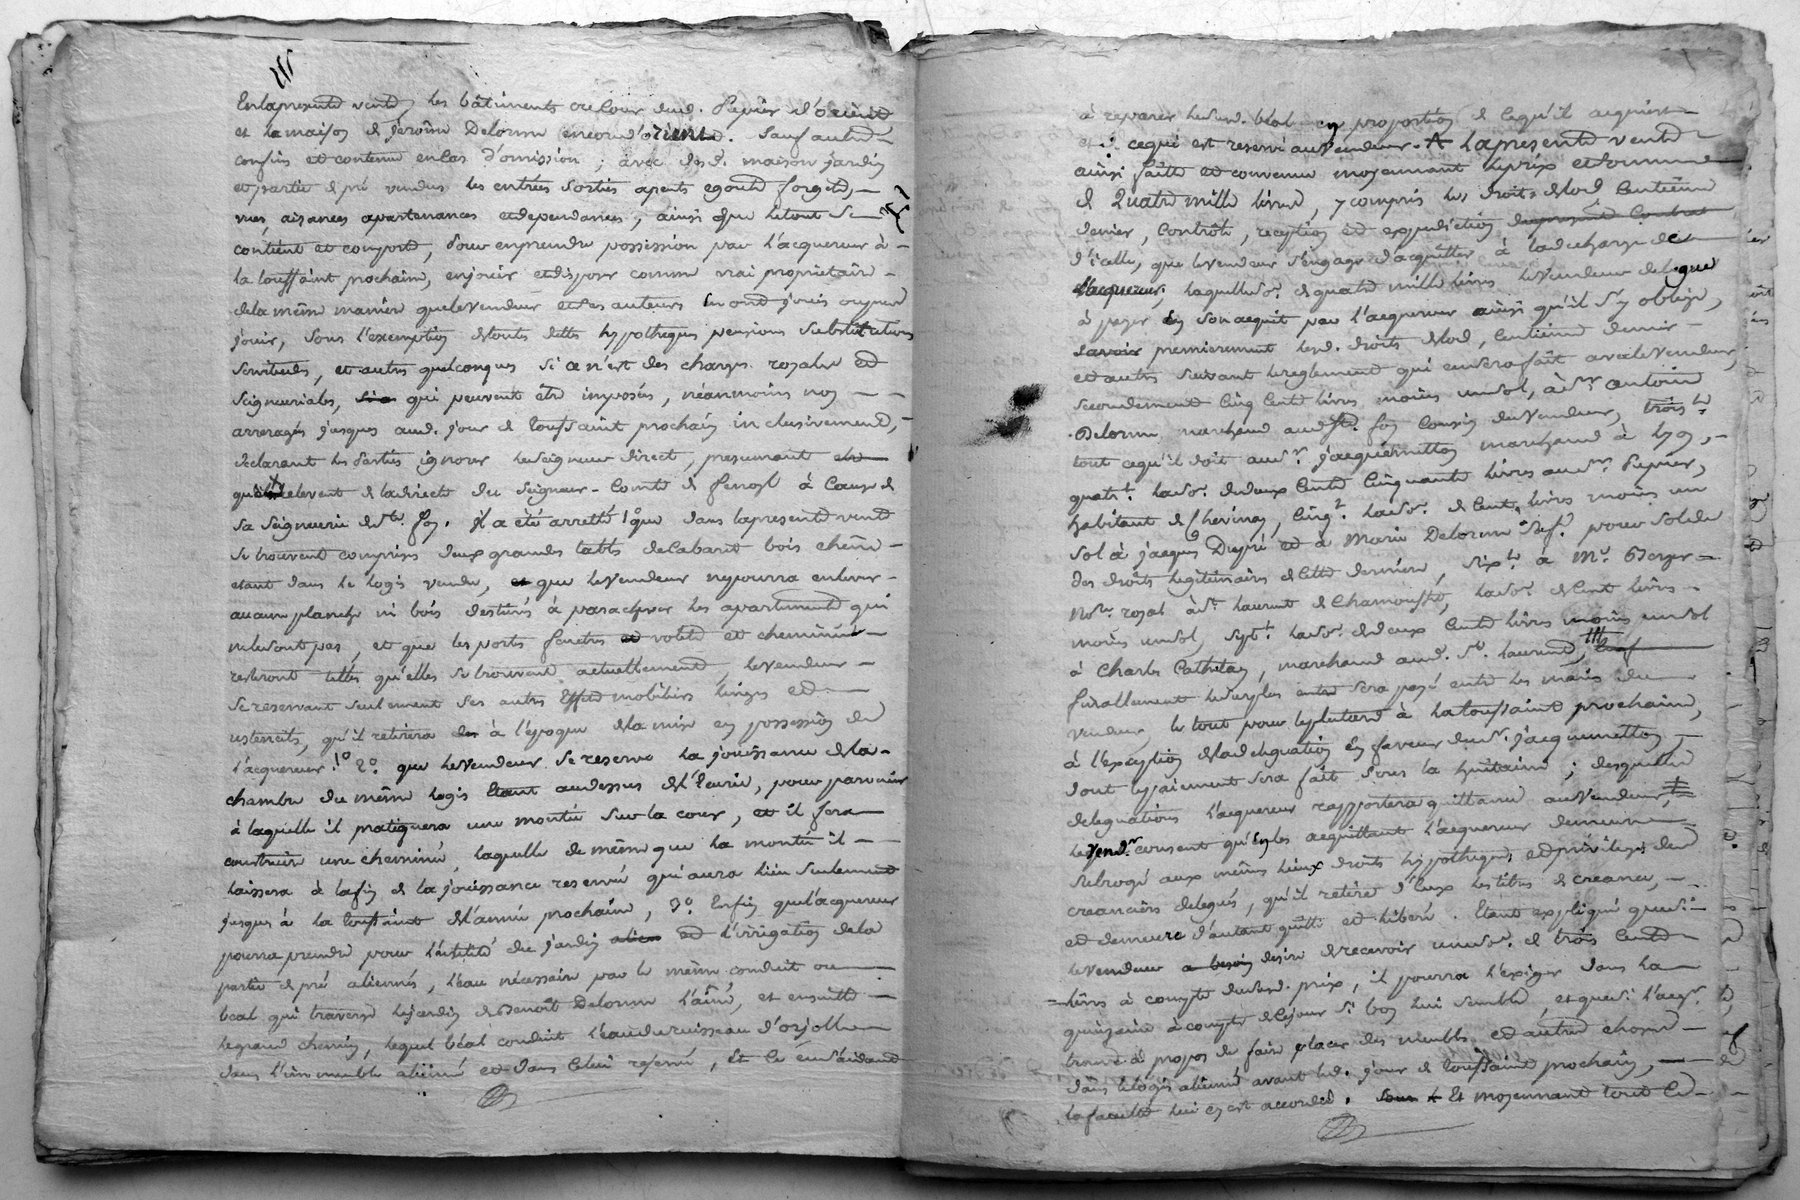 En la presente vente, les bâtiments ou cour dud. Pupier d'orient
et la maison de Jerôme Delorme encore d'orient. Sauf autres
confins et contenu en cas d'omission ; avec desd. maison jardin
et partie de pré vendus les entrées sorties apents egouts forgets,
vues, aisances apartenances et dependances, ainsi que le tout se
contient et comporte, pour en prendre possession par l'acquereur à
la toussaint prochaine, en jouir et disposer comme vrai propriétaire
de la même maniere que le vendeur et ses auteurs en ont joui ou peu
jouir, sous l'exemption de toutes dettes hypotheques pensions substitutions
servitudes, et autres quelconques si ce n'est des charges royales et
seigneuriales, qui peuvent etre imposées, néanmoins non
arreragés jusques aud. jour de toussaint prochain inclusivement,
declarant les parties ignorer le seigneur direct, presumant
qu'ils relevent de la directe du seigneur Comte de fenoyl à cause de
sa seigneurie de Ste. foy. Il a été arretté 1° que dans la presente vente
se trouvent comprises deux grandes tables de cabaret bois chêne
etant dans le logis vendu, et que le vendeur ne pourra enlever
aucune planche ni bois destinés à parachever les apartements qui
ne le sont pas, et que les portes fenetres et volets et cheminées
resteront telles qu'elles se trouvent actuellement, le vendeur
se reservant seulement ses autres effets mobiliers linges et
ustencils, qu'il retirera à l'epoque de la mise en possession de
l'acquereur. 2° que le vendeur se reserve la jouissance de la
chambre du même logis etant audessus de l'ecurie, pour parvenir
à laquelle il pratiquera une montée sur la cour, et il fera
construire une cheminée, laquelle de même que la montée il
laissera à la fin de la jouissance reservée qui aura lieu seulement
jusques à la toussaint de l'année prochaine, 3° Enfin que l'acquereur
pourra prendre pour l'utilité du jardin et l'irrigation de la
partie de pré aliennés, l'eau nécessaire par le même conduit ou
béal qui traverse le jardin de Benoît Delorme l'aîné, et ensuitte
le grand chemin, lequel béal conduit l'eau du ruisseau d'orjolle
dans l'immeuble alienné et dans celui reservé, Et ce en s'aidant
à reparer led. béal en proportion de ce qu'il acquiert
et de ce qui est reservé au vendeur. A la presente vente
ainsi faitte et convenue moyennant le prix et somme
de Quatre mille livres, y compris les droits de lod centième
denier, controle, reception et expedition
d'icelle, que le vendeur s'engage d'acquitter à la decharge de
l'acquereur, laquelle so. de quatre mille livres le vendeur delegue
à payer en son acquit par l'acquereur ainsi qu'il s'y oblige,
savoir premierement lesd. droits de lod, centième denier
et autres suivant le reglement qui en sera fait avec le vendeur,
secondement cinq cents livres moins un sol, à Sr. antoine
Delorme marchand aud. Ste. foy cousin du vendeur, trois.t
tout ce qu'il doit au Sr. Jacquemetton marchand à Lyon,
quatr.t la so. de deux cents cinquante livres au Sr. Pupier,
habitant de Chevinay, cinq.t la so. de cent livres moins un
sol à Jacques Dupré et à Marie Delorme sa f.e pour solde
des droits legitimaires de cette derniere, six.t à Me. Berger
Not.re royal à St. Laurent de Chamousset, la so. de cent livres
moins un sol, sept.t la so. de deux cents livres moins un sol
à Charles Cathelan, marchand aud. St. Laurent,
finallement le surplus entre sera payé entre les mains du
vendeur, le tout pour le plutard à la toussaint prochaine,
à l'exception de la delegation en faveur dud. Sr. Jacquemetton
dont le paiement sera fait sous la huitaine ; desquelles
delegations l'acquereur rapportera quittance au vendeur,
le vend.r consent qu'en les acquittant l'acquereur demeure
subrogé aux mêmes lieux droits hypotheques et privileges des
creanciers delegués, qu'il retire d'eux les titres de creance,
et demeure d'autant quitte et liberé. Etant expliqué que si
le vendeur desire de recevoir une so. de trois cents
livres à compte dud. prix, il pourra l'exiger dans la
quinzaine à compter de ce jour si bon lui semble, et que si l'acq.r
trouve à propos de faire placer des meubles et autres choses
dans le logis alienné avant led. jour de toussaint prochain,
la faculté lui en est accordée. Et moyennant tout ce